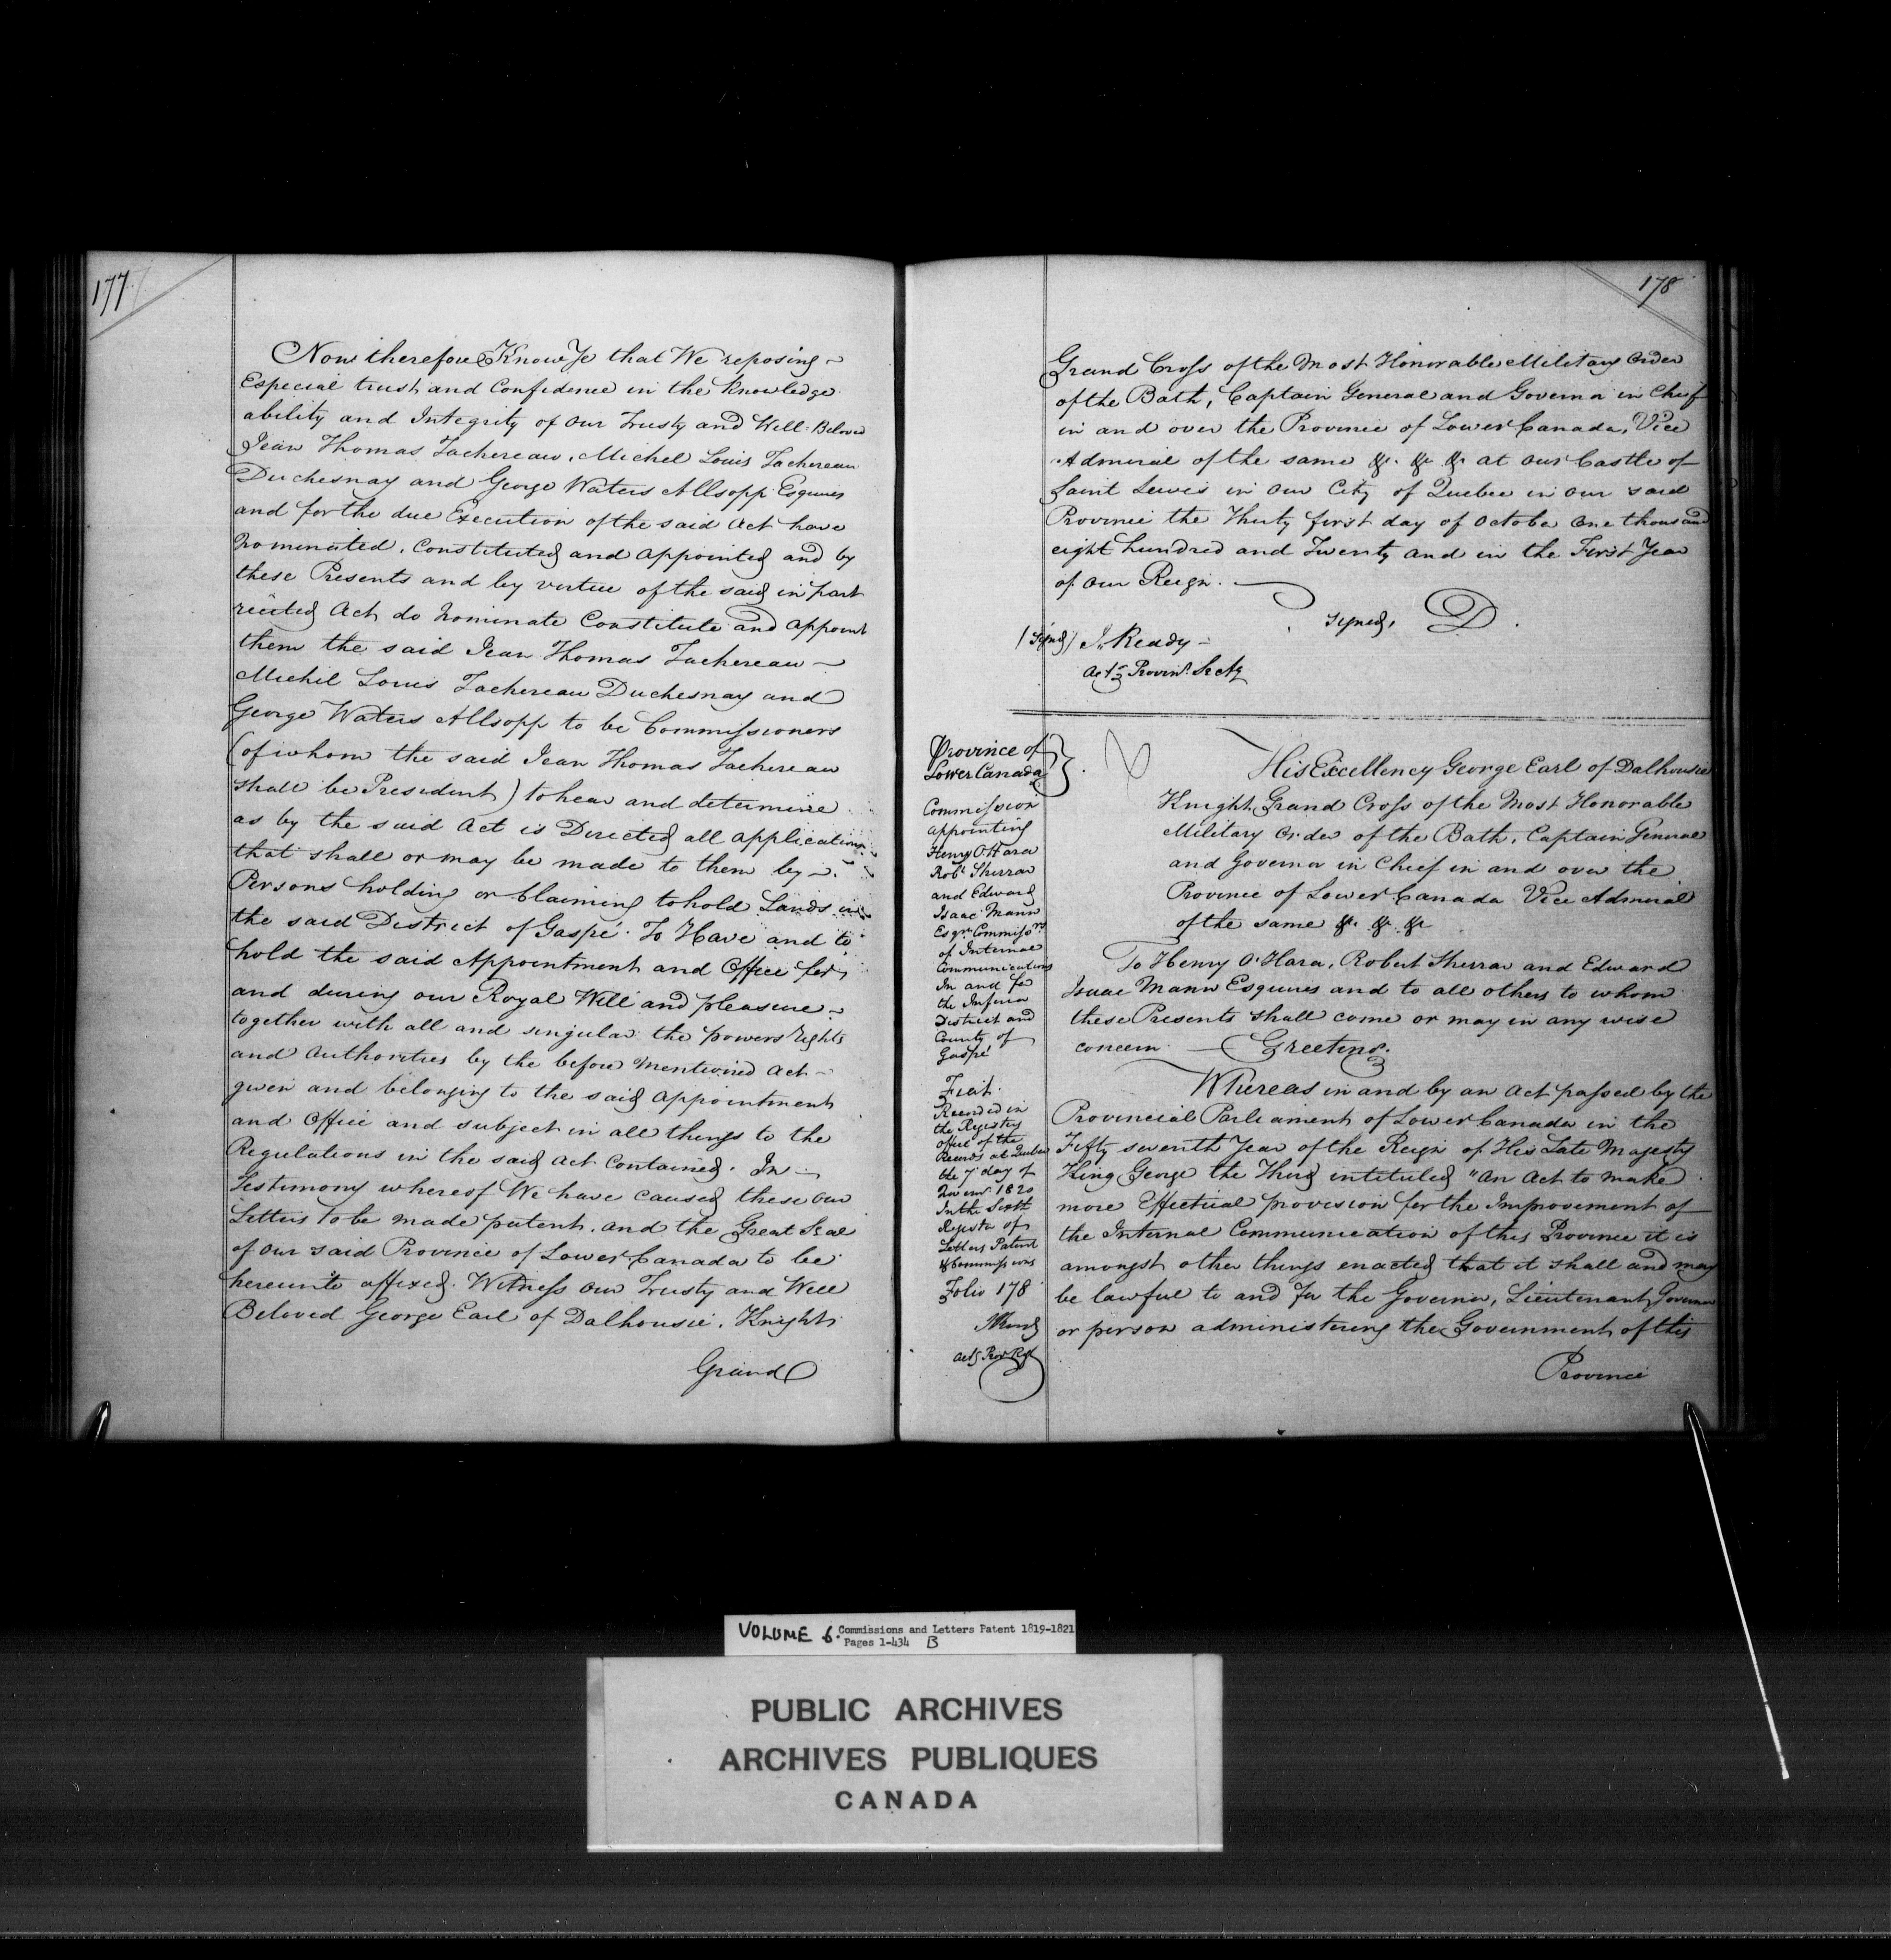 177
Now therefore Know Ye that We reposing
Especial trust and Confidence in the Knowledge
ability and Integrity of our Trusty and Well Beloved
Jean Thomas Tachereau, Michel Louis Tachereau
Duchesnay and George Waters Allsopp Esquires
and for the due Execution of the said Act have
nominated, Constituted and appointed and by
these Presents and by virtue of the said in part
recited Act do nominate Constitute and appoint
them the said Jean Thomas Tachereau
Michil Louis Tachereau Duchesnay and
George Waters Allsopp to be Commissioners
(of whom the said Jean Thomas Tachereau
shall be President) to hear and determine
as by the said Act is Directed all applications
that shall or may be made to them by
Persons holding or Claiming to hold Lands in
the said District of Gaspé. To Have and to
hold the said Appointment and Office for
and during our Royal Will and pleasure
together with all and singular the powers rights
and Authorities by the before Mentioned Act
given and belonging to the said appointment
and Office and subject in all things to the
Regulations in the said Act Contained. In
Testimony whereof We have caused these our
Letters to be made patent, and the Great Seal
of our said Province of Lower Canada to be
hereunto affixed. Witness our Trusty and Well
Beloved George Earl of Dalhousie, Knight
Grand
178
Grand Cross of the Most Honorable Military Order
of the Bath, Captain General and Governor in Chief
in and over the Province of Lower Canada, Vice
Admiral of the same &c. &c. &c. at our Castle of
Saint Lewis in our City of Quebec in our said
Province the Thirty first day of October One thousand
eight hundred and Twenty and in the First Year
of our Reign.
signed, D.
(signed) J. Ready
Actg Provinl. Secty
Province of
Lower Canada
Commission
appointing
Henry O'Hara
Robt Sherrar
and Edward
Isaac Mann
Esqrs Commissrs
of Internal
Communications
In and for
the Inferior
District and
County of
Gaspé
Fiat.
Recorded in
the Registry
office of the
Records at Quebec
the 7 day of
Novemr 1820
In the Sixth
Register of
Letters Patent
& Commissions
Folio 178
JReady
actg Prov Regr
His Excellency George Earl of Dalhousie
Knight Grand Cross of the Most Honorable
Military Order of the Bath, Captain General
and Governor in Chief in and over the
Province of Lower Canada Vice Admiral
of the same &c. &c. &c
To Henry O'Hara, Robert Sherrar and Edward
Isaac Mann Esquires and to all others to whom
these Presents shall come or may in any wise
concern Greeting.
Whereas in and by an Act passed by the
Provincial Parliament of Lower Canada in the
Fifty seventh Year of the Reign of His Late Majesty
King George the Third intituled "An Act to make
more Effectual provision for the Improvement of
the Internal Communication of this Province it is
amongst other things enacted that it shall and may
be lawful to and for the Governor, Lieutenant Governor
or person administering the Government of this
Province
VOLUME 6. Commissions and Letters Patent 1819-1821
Pages 1-434 B
PUBLIC ARCHIVES
ARCHIVES PUBLIQUES
CANADA